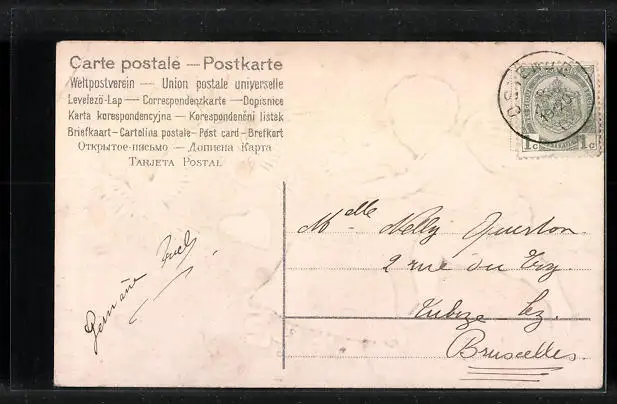 Carte postale — Postkarte
Weltpostverein — Union postale universelle
Levelező-Lap — Correspondenzkarte — Dopisnice
Karta korespondencyjna — Korespondenční lístek
Briefkaart — Cartolina postale — Post card — Brefkort
Открытое письмо — Дописна Карта
TARJETA POSTAL
1c 1c
Melle Nelly
2 rue du
Bruxelles
Germaine